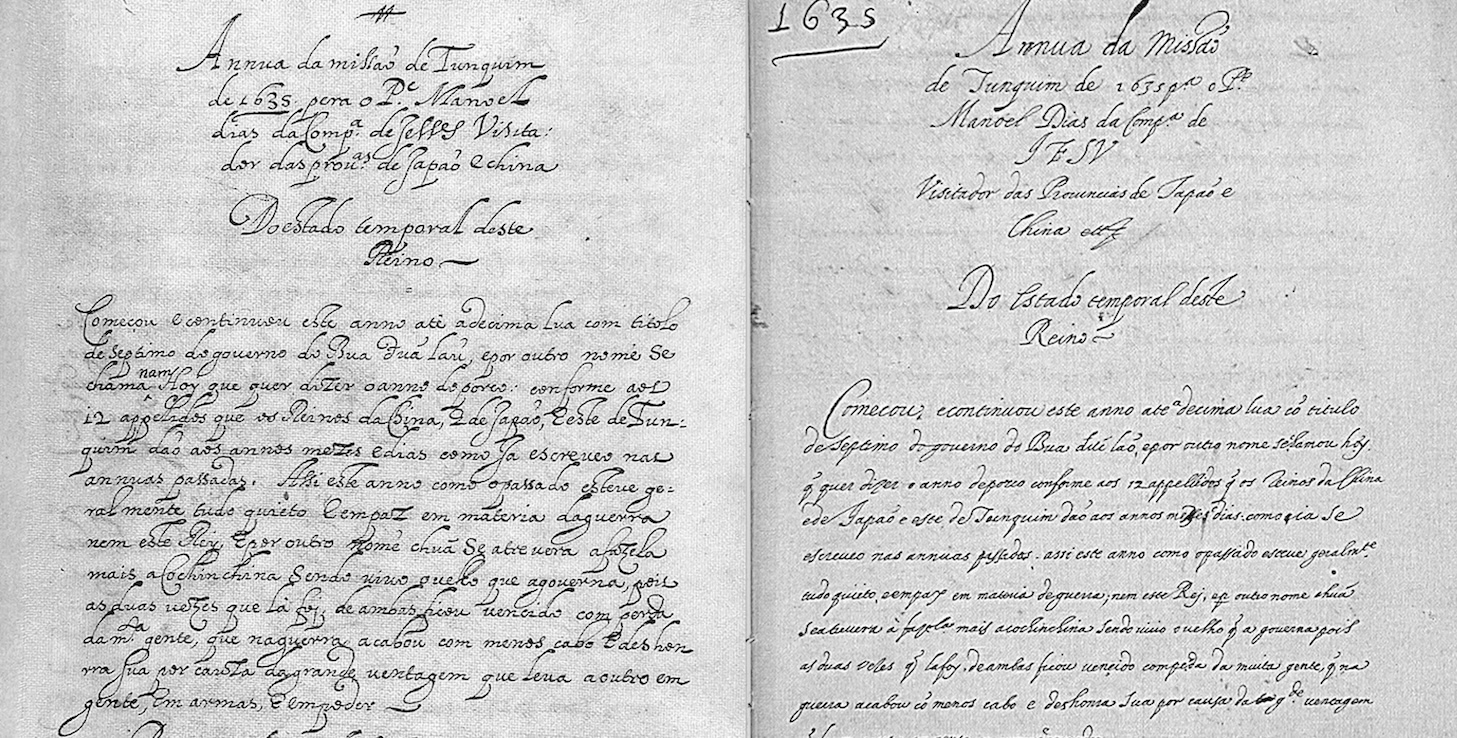 Annua da missaõ de Tunquim
de 1635 pera o P.e Manoel
dias da Comp.a de Jesus Visita:
dor das prou.as de Japaõ e china
Do estado temporal deste
Reino
Começou e continuou este anno atè a decima lua com titolo
de septimo do governo do Bua duã laũ, e por outro nome se
chama nam Hoy que quer dizer o anno de porco: conforme aos
12 appelidos que os Reinos da China, e de Japaõ, e este de Tun:
quim daõ aos annos mezes e dias como ja escreveo nas
annuas passadas. Assi este anno como o passado esteve ge:
ralmente tudo quieto e em paz em materia da guerra
nem este Rey, e por outro nome chuã se atrevera a fazela
mais a Cochinchina sendo vivo o velho que a governa, pois
as duas vezes que là foi, de ambas ficou vencido com perda
da m.ta gente, que na guerra acabou com menos cabo e deshon
rra sua por causa da grande ventagem que leva a outro em
gente, em armas, e em poder
1635
Annua da Missaõ
de Tunquim de 1635 p.a o P.e
Manoel Dias da Comp.a de
IESV
Visitador das Prouincias de Japaõ e
China ett.
Do Estado temporal deste
Reino
Começou, e continuou este anno ate a decima lua cõ titulo
de septimo do governo do Bua duã laõ, e por outro nome se chamou hoy
q̃ quer dizer o anno de porco conforme aos 12 appellidos q̃ os Reinos da China
e de Japaõ e este de Tunquim daõ aos annos mezes dias. como ia se
escreveo nas annuas passadas. assi este anno como o passado esteve geralm.te
tudo quieto, e em paz em materia de guerra, nem este Rej, e p outro nome chuã
se atrevera à fazela mais a cochinchina sendo uiuo o uelho q̃ a governa pois
as duas vezes q̃ la foy, de ambas ficou vencido com peda da muita gente, q̃ na
guerra acabou cõ menos cabo e deshonra sua por causa da g.de ventagem